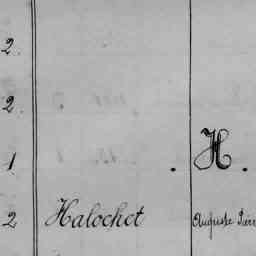 2.
2.
1 . H.
2 Halochet Auguste Pier